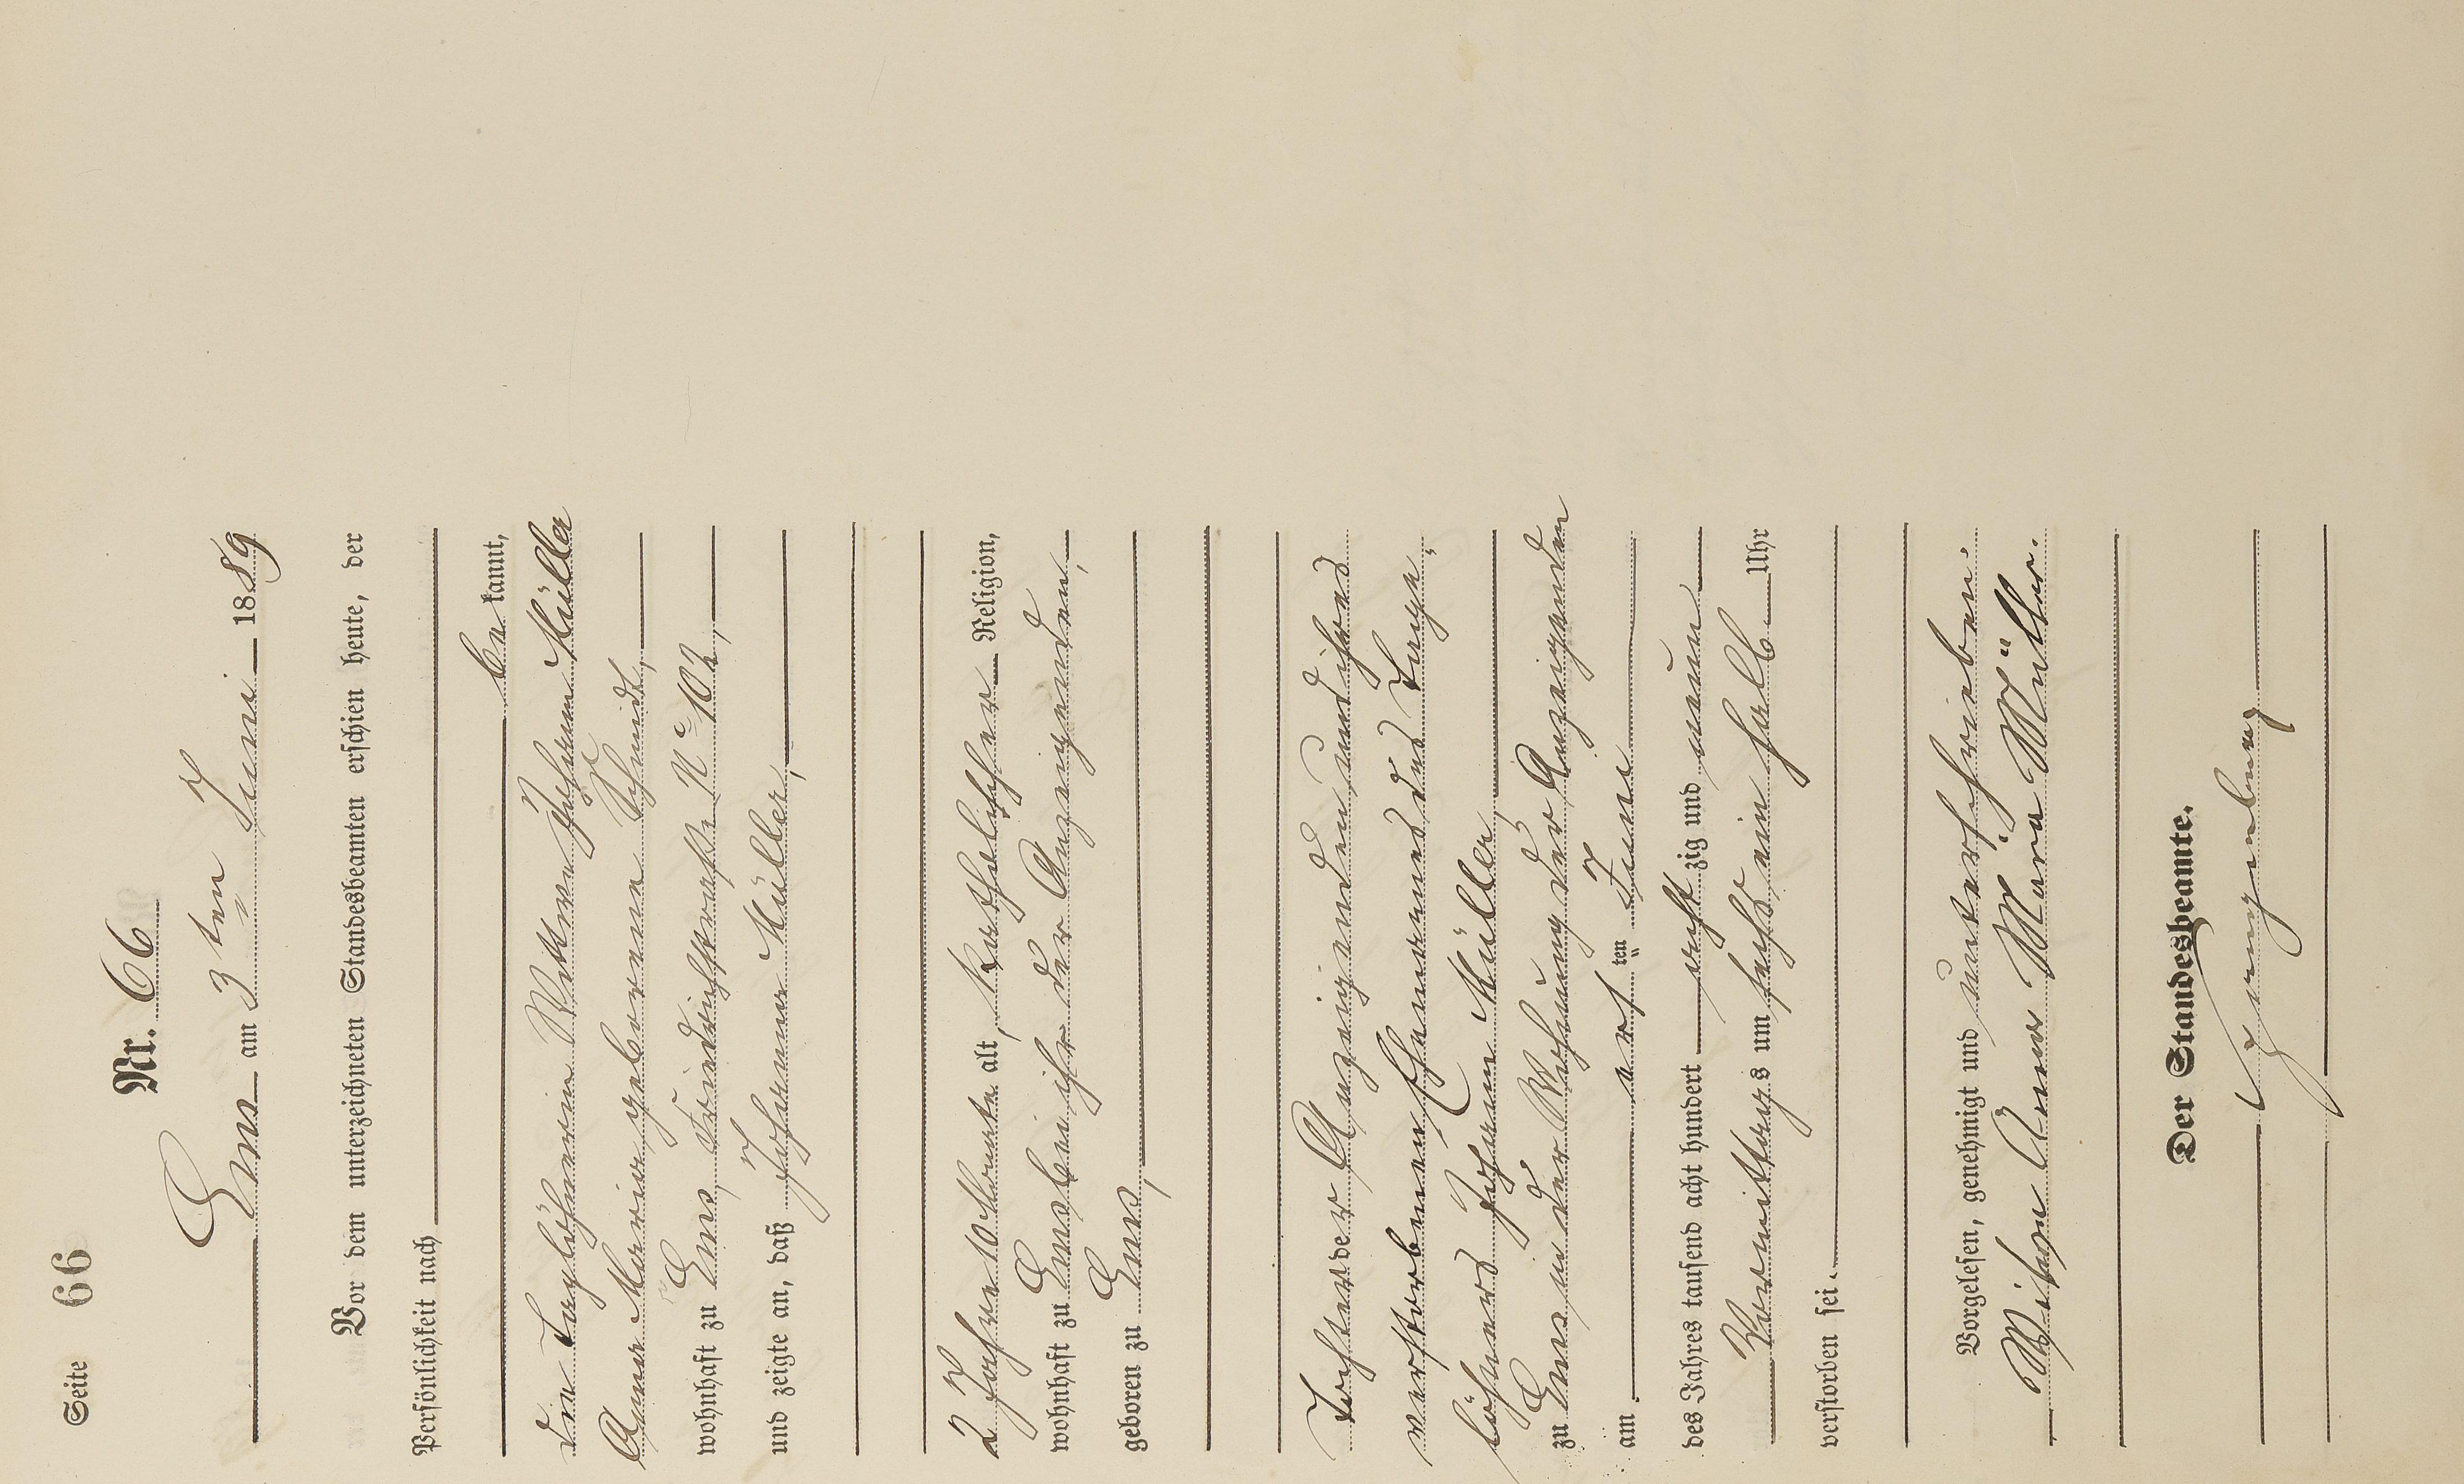 Seite 66
Nr. 66
Ems am 3ten Juni 1889
Vor dem unterzeichneten Standesbeamten erschien heute, der
Persönlichkeit nach
be kannt,
die Taglöhnerin Wittwe Johann Müller
Anna Maria geborene Schmidt,
wohnhaft zu Ems, Friedrichstraße No 102,
und zeigte an, daß Johanna Müller,
2 Jahre 10 Monate alt, katholischer Religion,
wohnhaft zu Ems bei ihr der Anzeigenden,
geboren zu Ems,
Tochter der Anzeigenden und ihres
verstorbenen Ehemannes des Tage-
löhners Johann Müller,
zu Ems in der Wohnung der Anzeigenden
am ersten Juni
des Jahres tausend acht hundert acht zig und neun
Vormittags um sechs ein halb Uhr
verstorben sei.
Vorgelesen, genehmigt und unterschrieben.
Witwe Anna Maria Müller.
Der Standesbeamte.